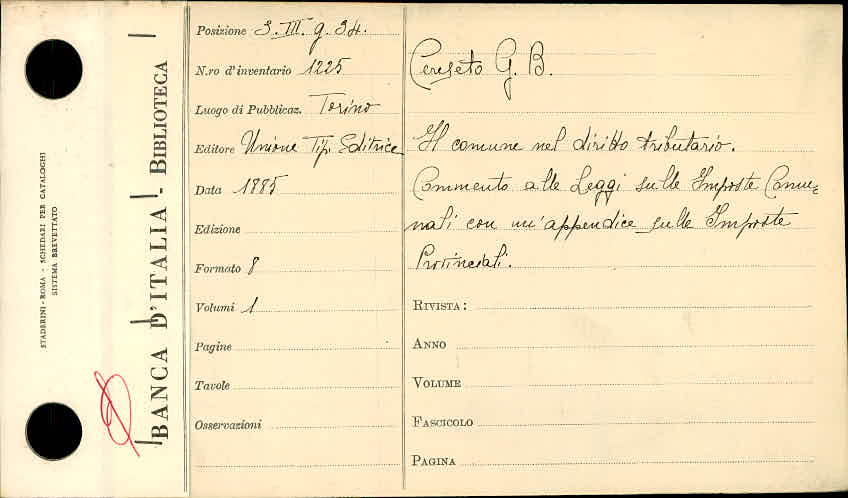 STADERINI - ROMA - SCHEDARI PER CATALOGHI
SISTEMA BREVETTATO
BANCA D'ITALIA - BIBLIOTECA
Posizione 3. III. g. 34.
N.ro d'inventario 1225
Luogo di Pubblicaz. Torino
Editore Unione Tip. Editrice
Data 1885
Edizione
Formato 8
Volumi 1
Pagine
Tavole
Osservazioni
Cereseto G. B.
Il comune nel diritto tributario.
Commento alle Leggi sulle Imposte Comu=
nali con un'appendice sulle Imposte
Provinciali.
RIVISTA:
ANNO
VOLUME
FASCICOLO
PAGINA